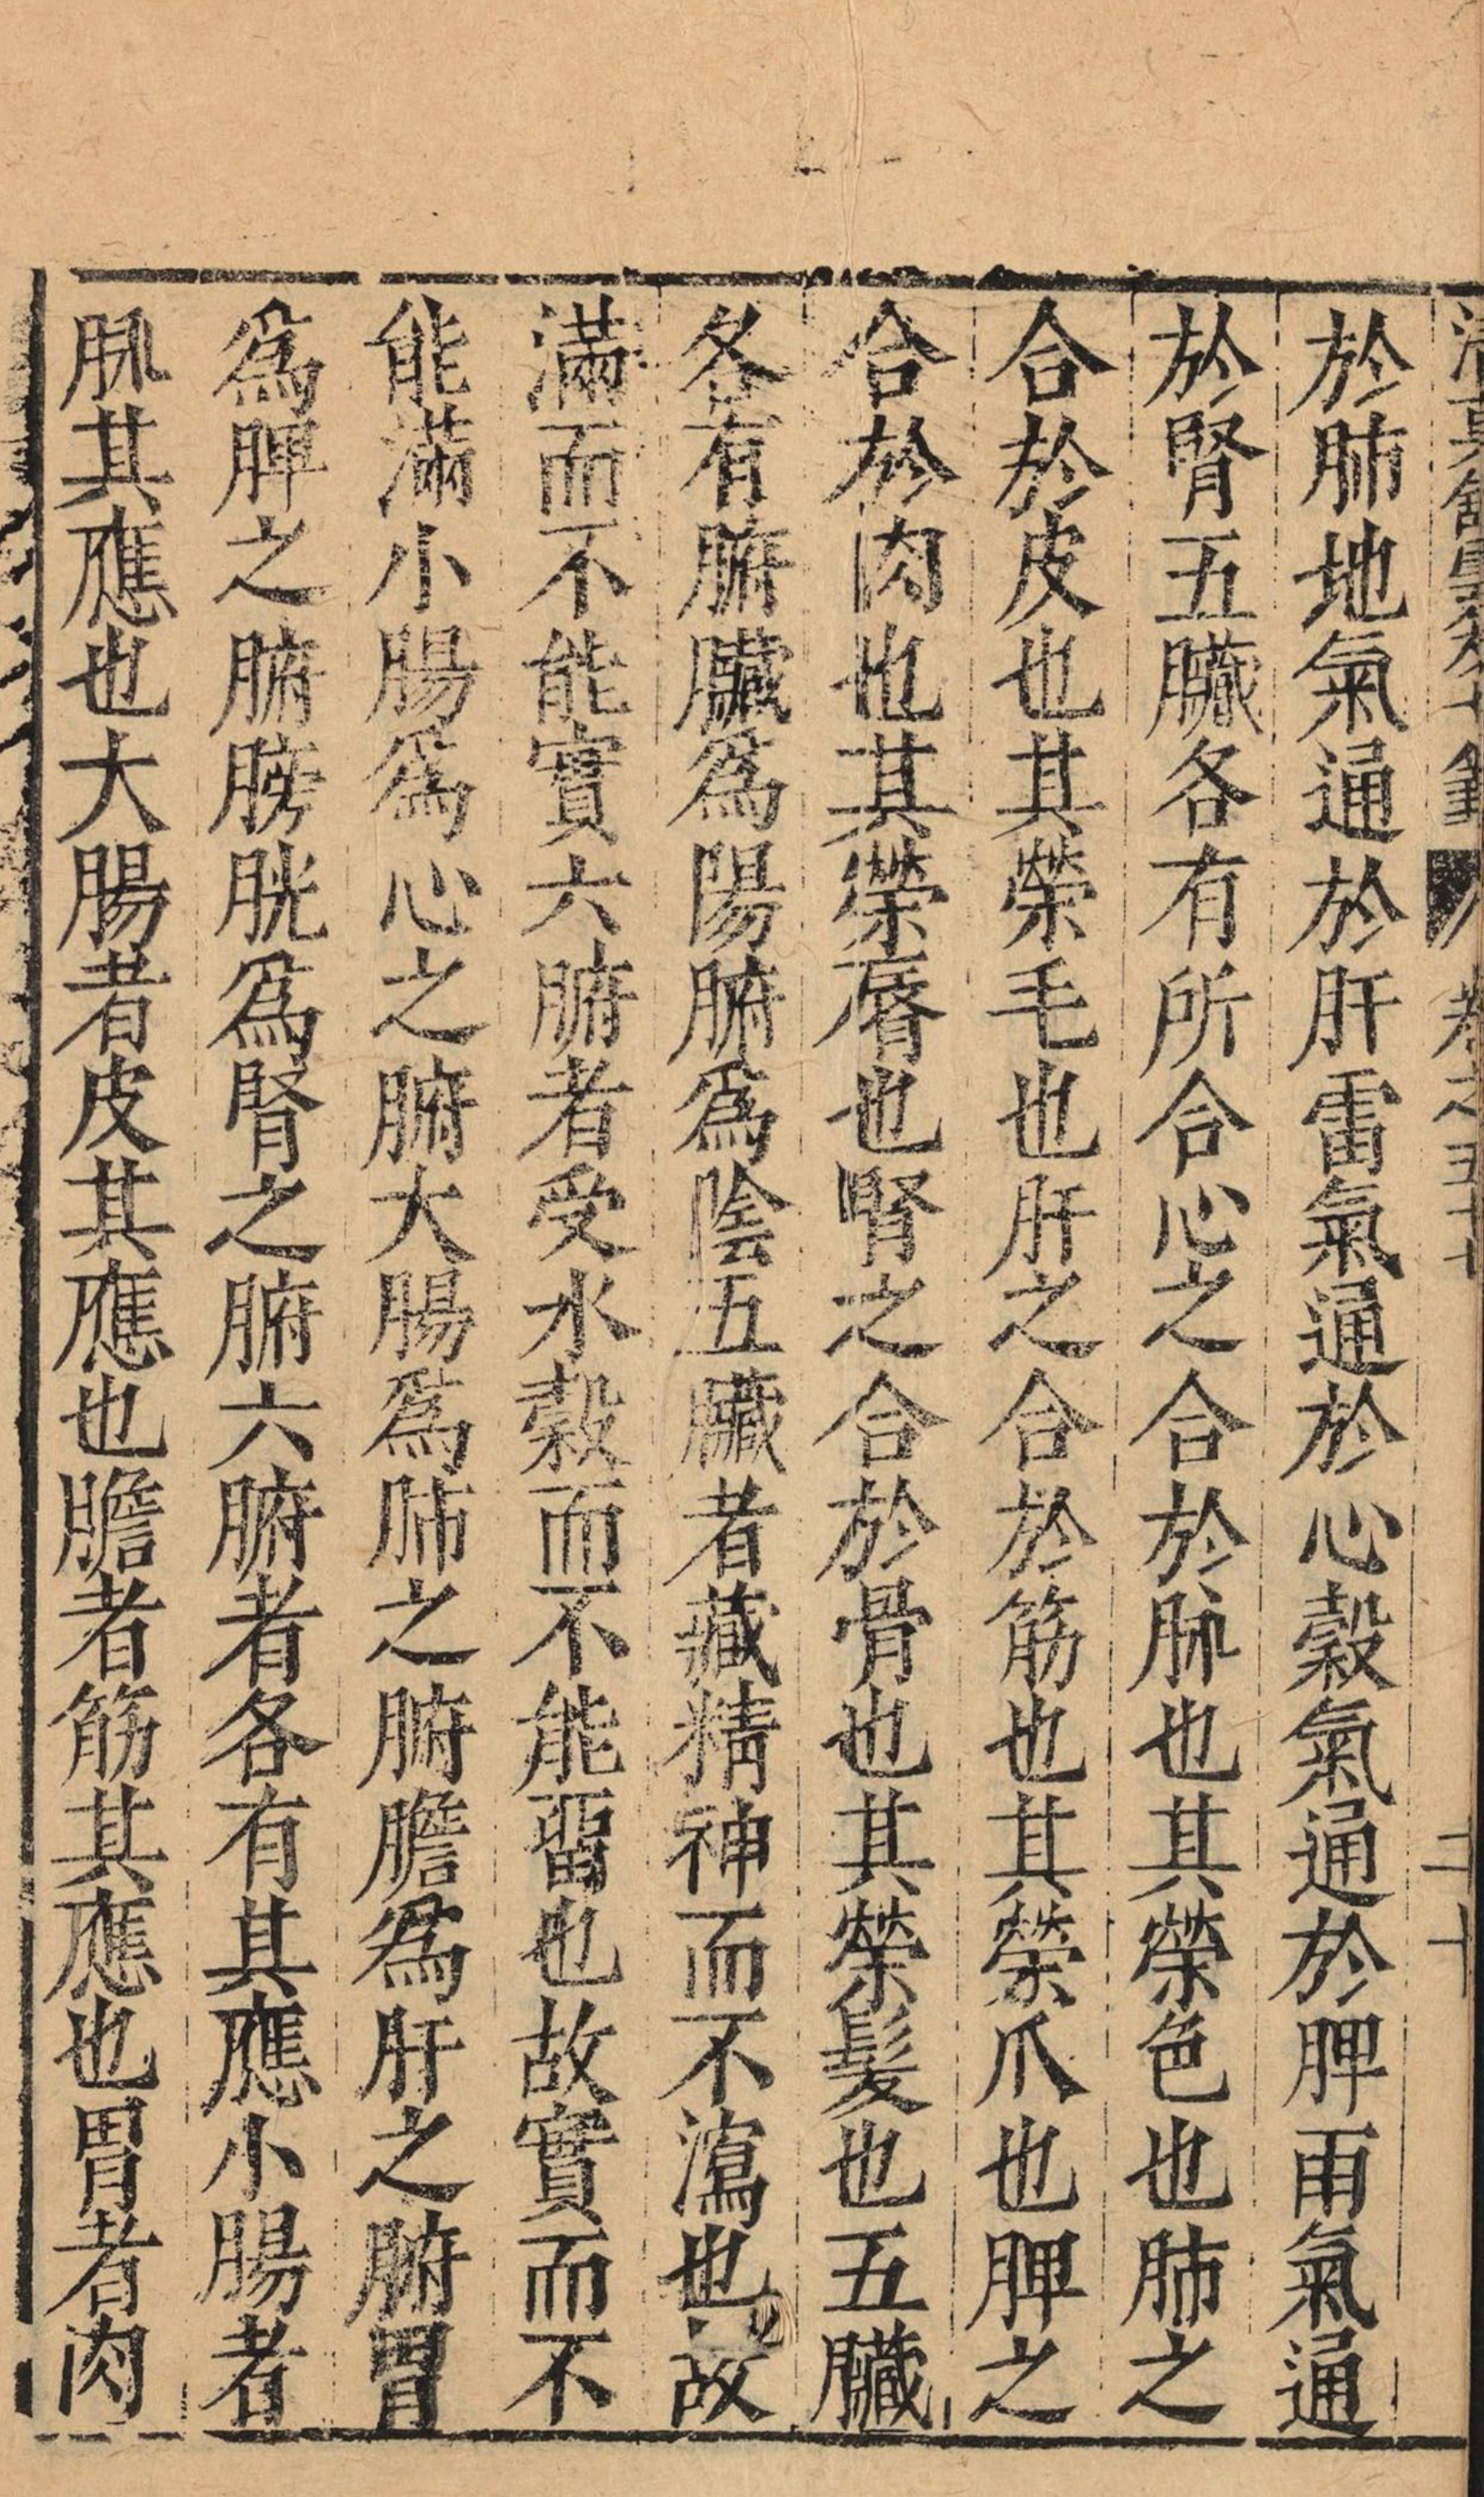 卷之五十七
二十
於肺地氣通於肝雷氣通於心穀氣通於脾雨氣通
於腎五臟各有所合心之合於脉也其榮色也肺之
合於皮也其榮毛也肝之合於筋也其榮爪也脾之
合於肉也其榮脣也腎之合於骨也其榮髪也五臟
各有腑臟爲陽腑爲陰五臟者藏精神而不瀉也故
滿而不能實六腑者受水穀而不能畱也故實而不
能滿小腸爲心之腑大腸爲肺之腑膽爲肝之腑胃
爲脾之腑膀胱爲腎之腑六腑者各有其應小腸者
脉其應也大腸者皮其應也膽者筋其應也胃者肉